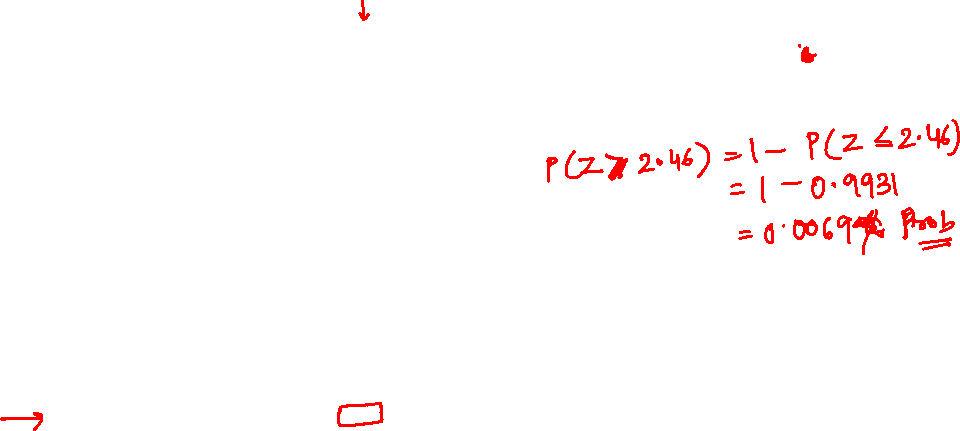 P(Z > 2.46) = 1 - P(Z ≤ 2.46)
= 1 - 0.9931
= 0.0069 Prob